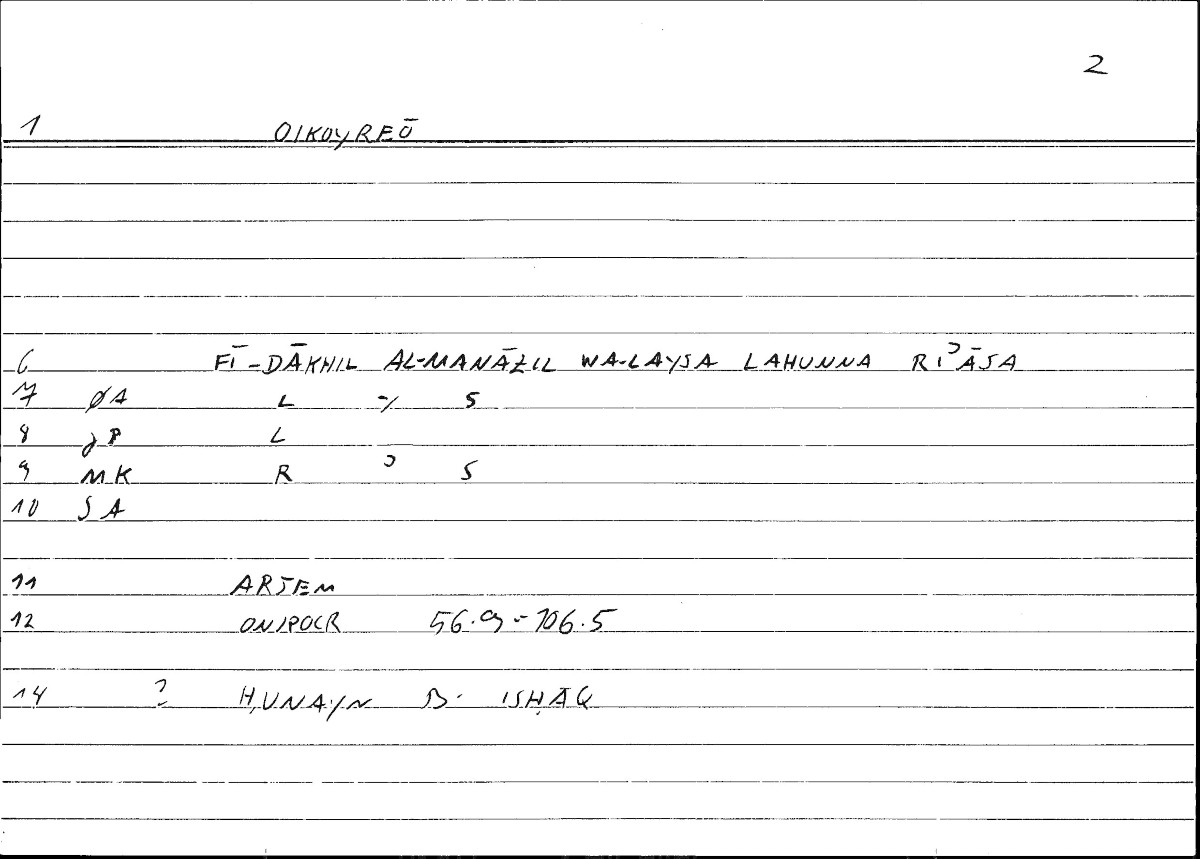 2
1 OIKOYREŌ
6 FĪ-DĀKHIL AL-MANĀZIL WA-LAYSA LAHUNNA RIʾĀSA
7 ØA L Y S
8 JP L
9 MK R ʾ S
10 SA
11 ARTEM
12 ONIPOCR 56.9-106.5
14 ? ḤUNAYN B. ISḤĀQ